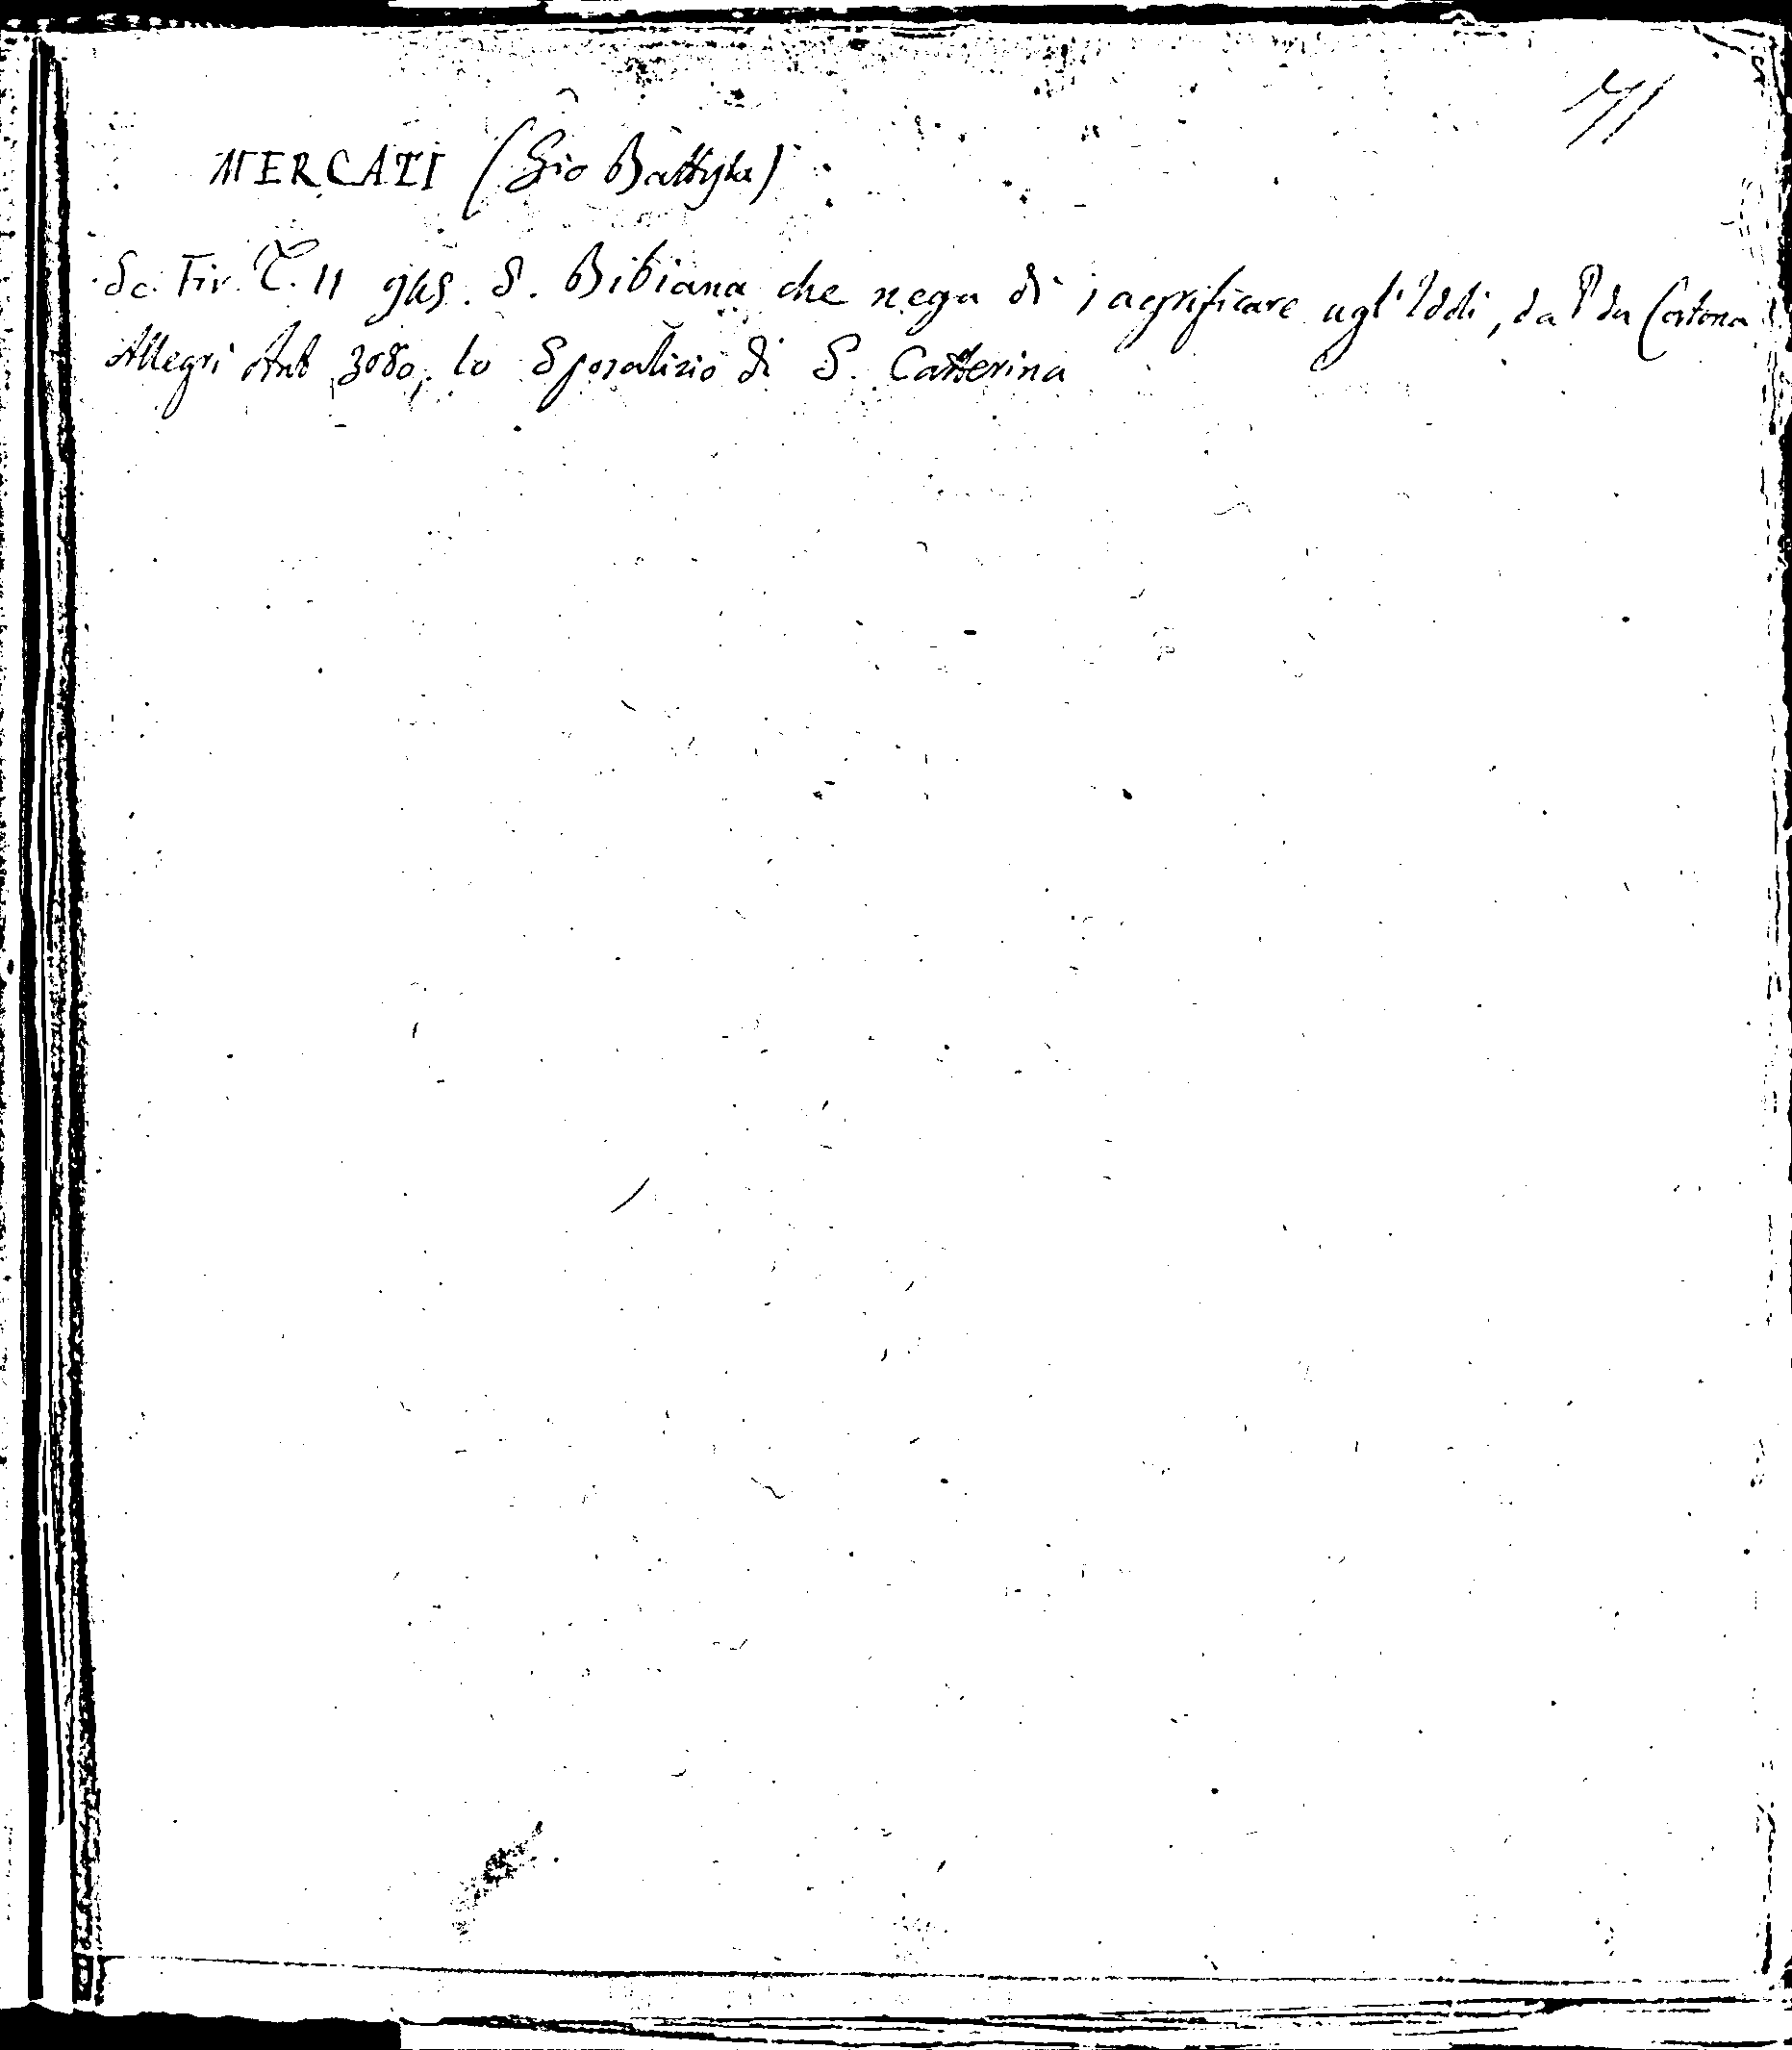 MERCATI (Gio Battista)
Sc. Fir. T. 11 S. Bibiana che nega di sagrificare agl'Iddi, da P da Cortona
Allegri Ant 3080, lo Sposalizio di S. Catterina